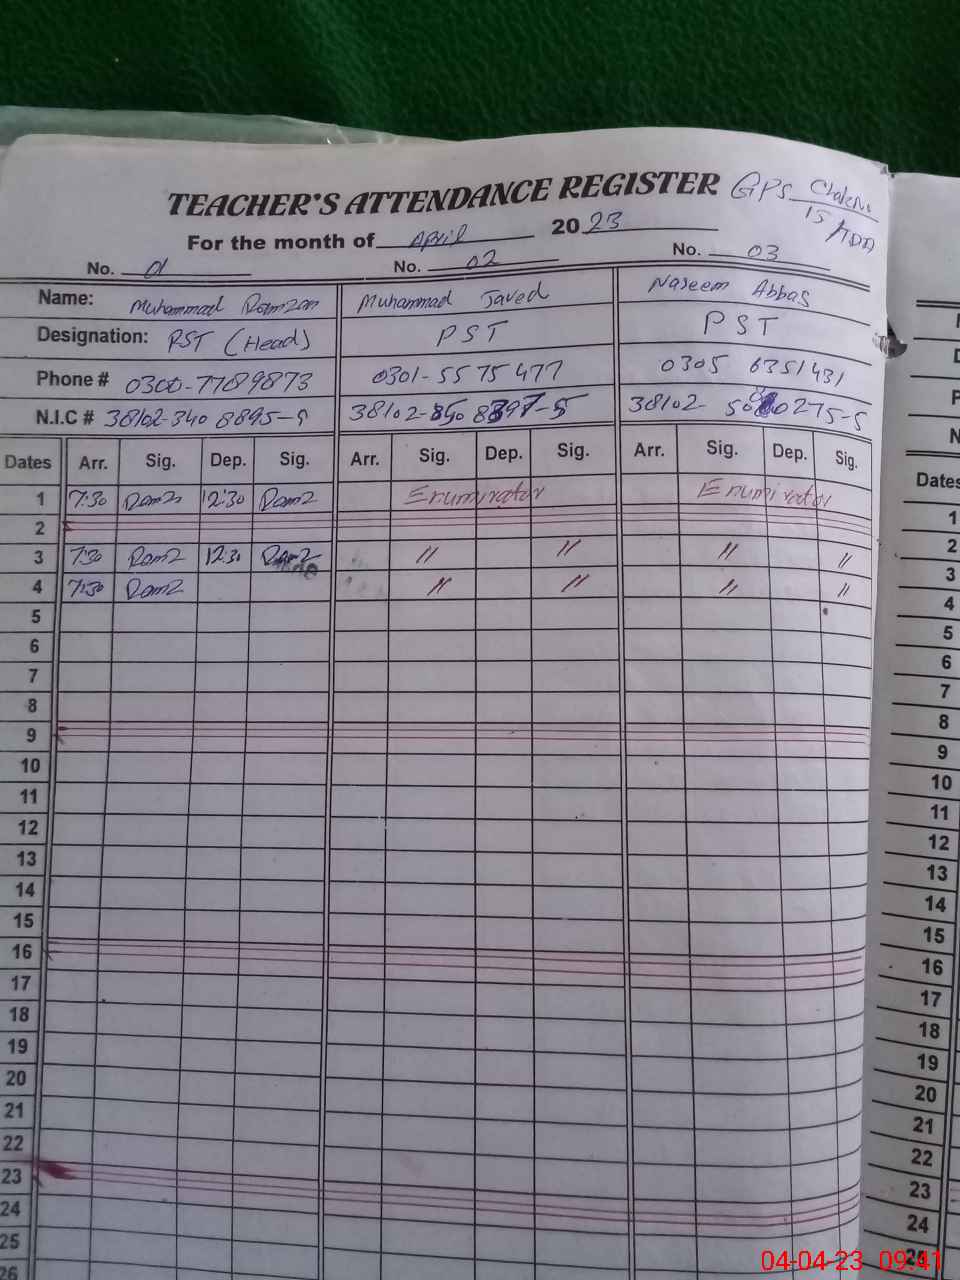 TEACHER'S ATTENDANCE REGISTER GPS Chak No
15/TDA
For the month of April 2023
No. 01 No. 02 No. 03
Name: Muhammad Ramzan Muhammad Javed Naseem Abbas
Designation: PST (Head) PST PST
Phone # 0300-7789873 0301-5575477 0305 6351431
N.I.C # 38102-340 8895-9 38102- 38102-
Dates Arr. Sig. Dep. Sig. Arr. Sig. Dep. Sig. Arr. Sig. Dep. Sig.
1 7:30 Ramz 12:30 Ramz Enumirator Enumirator
2
3 7:30 Ramz 12:30 Ramz " " " "
4 7:30 Ramz " " " "
5
6
7
8
9
10
11
12
13
14
15
16
17
18
19
20
21
22
23
24
25
26
Dates
1
2
3
4
5
6
7
8
9
10
11
12
13
14
15
16
17
18
19
20
21
22
23
24
25
04-04-23 09:41